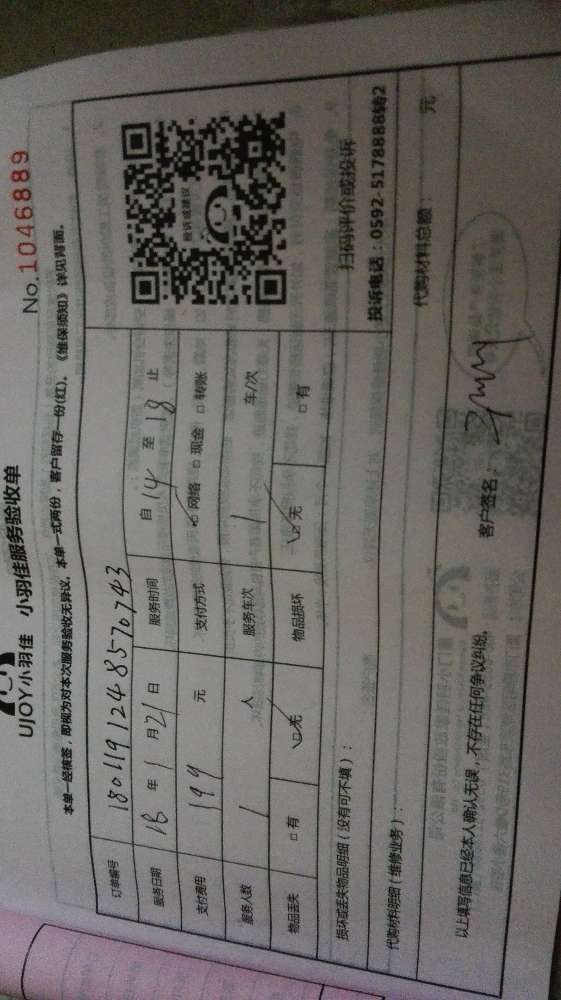 No.1046889
UJOY小羽佳 小羽佳服务验收单
本单一经核签，即视为对本次服务验收无异议，本单一式两份，客户留存一份(红)。《维保须知》详见背面。
订单编号 180119124857074３
服务日期 18 年 1 月 21 日 服务时间 自 14 至 18 止
支付费用 199 元 支付方式 ☑网络 □现金 □转账
服务人数 1 人 服务车次 1 车/次
物品丢失 □有 ☑无 物品损坏 ☑无 □有
投诉或建议
扫码评价或投诉
投诉电话：0592-5178888转2
损坏或丢失物品明细（没有可不填）：
代购材料明细（维修业务）： 代购材料总额： 元
以上填写信息已经本人确认无误，不存在任何争议纠纷。 客户签名：